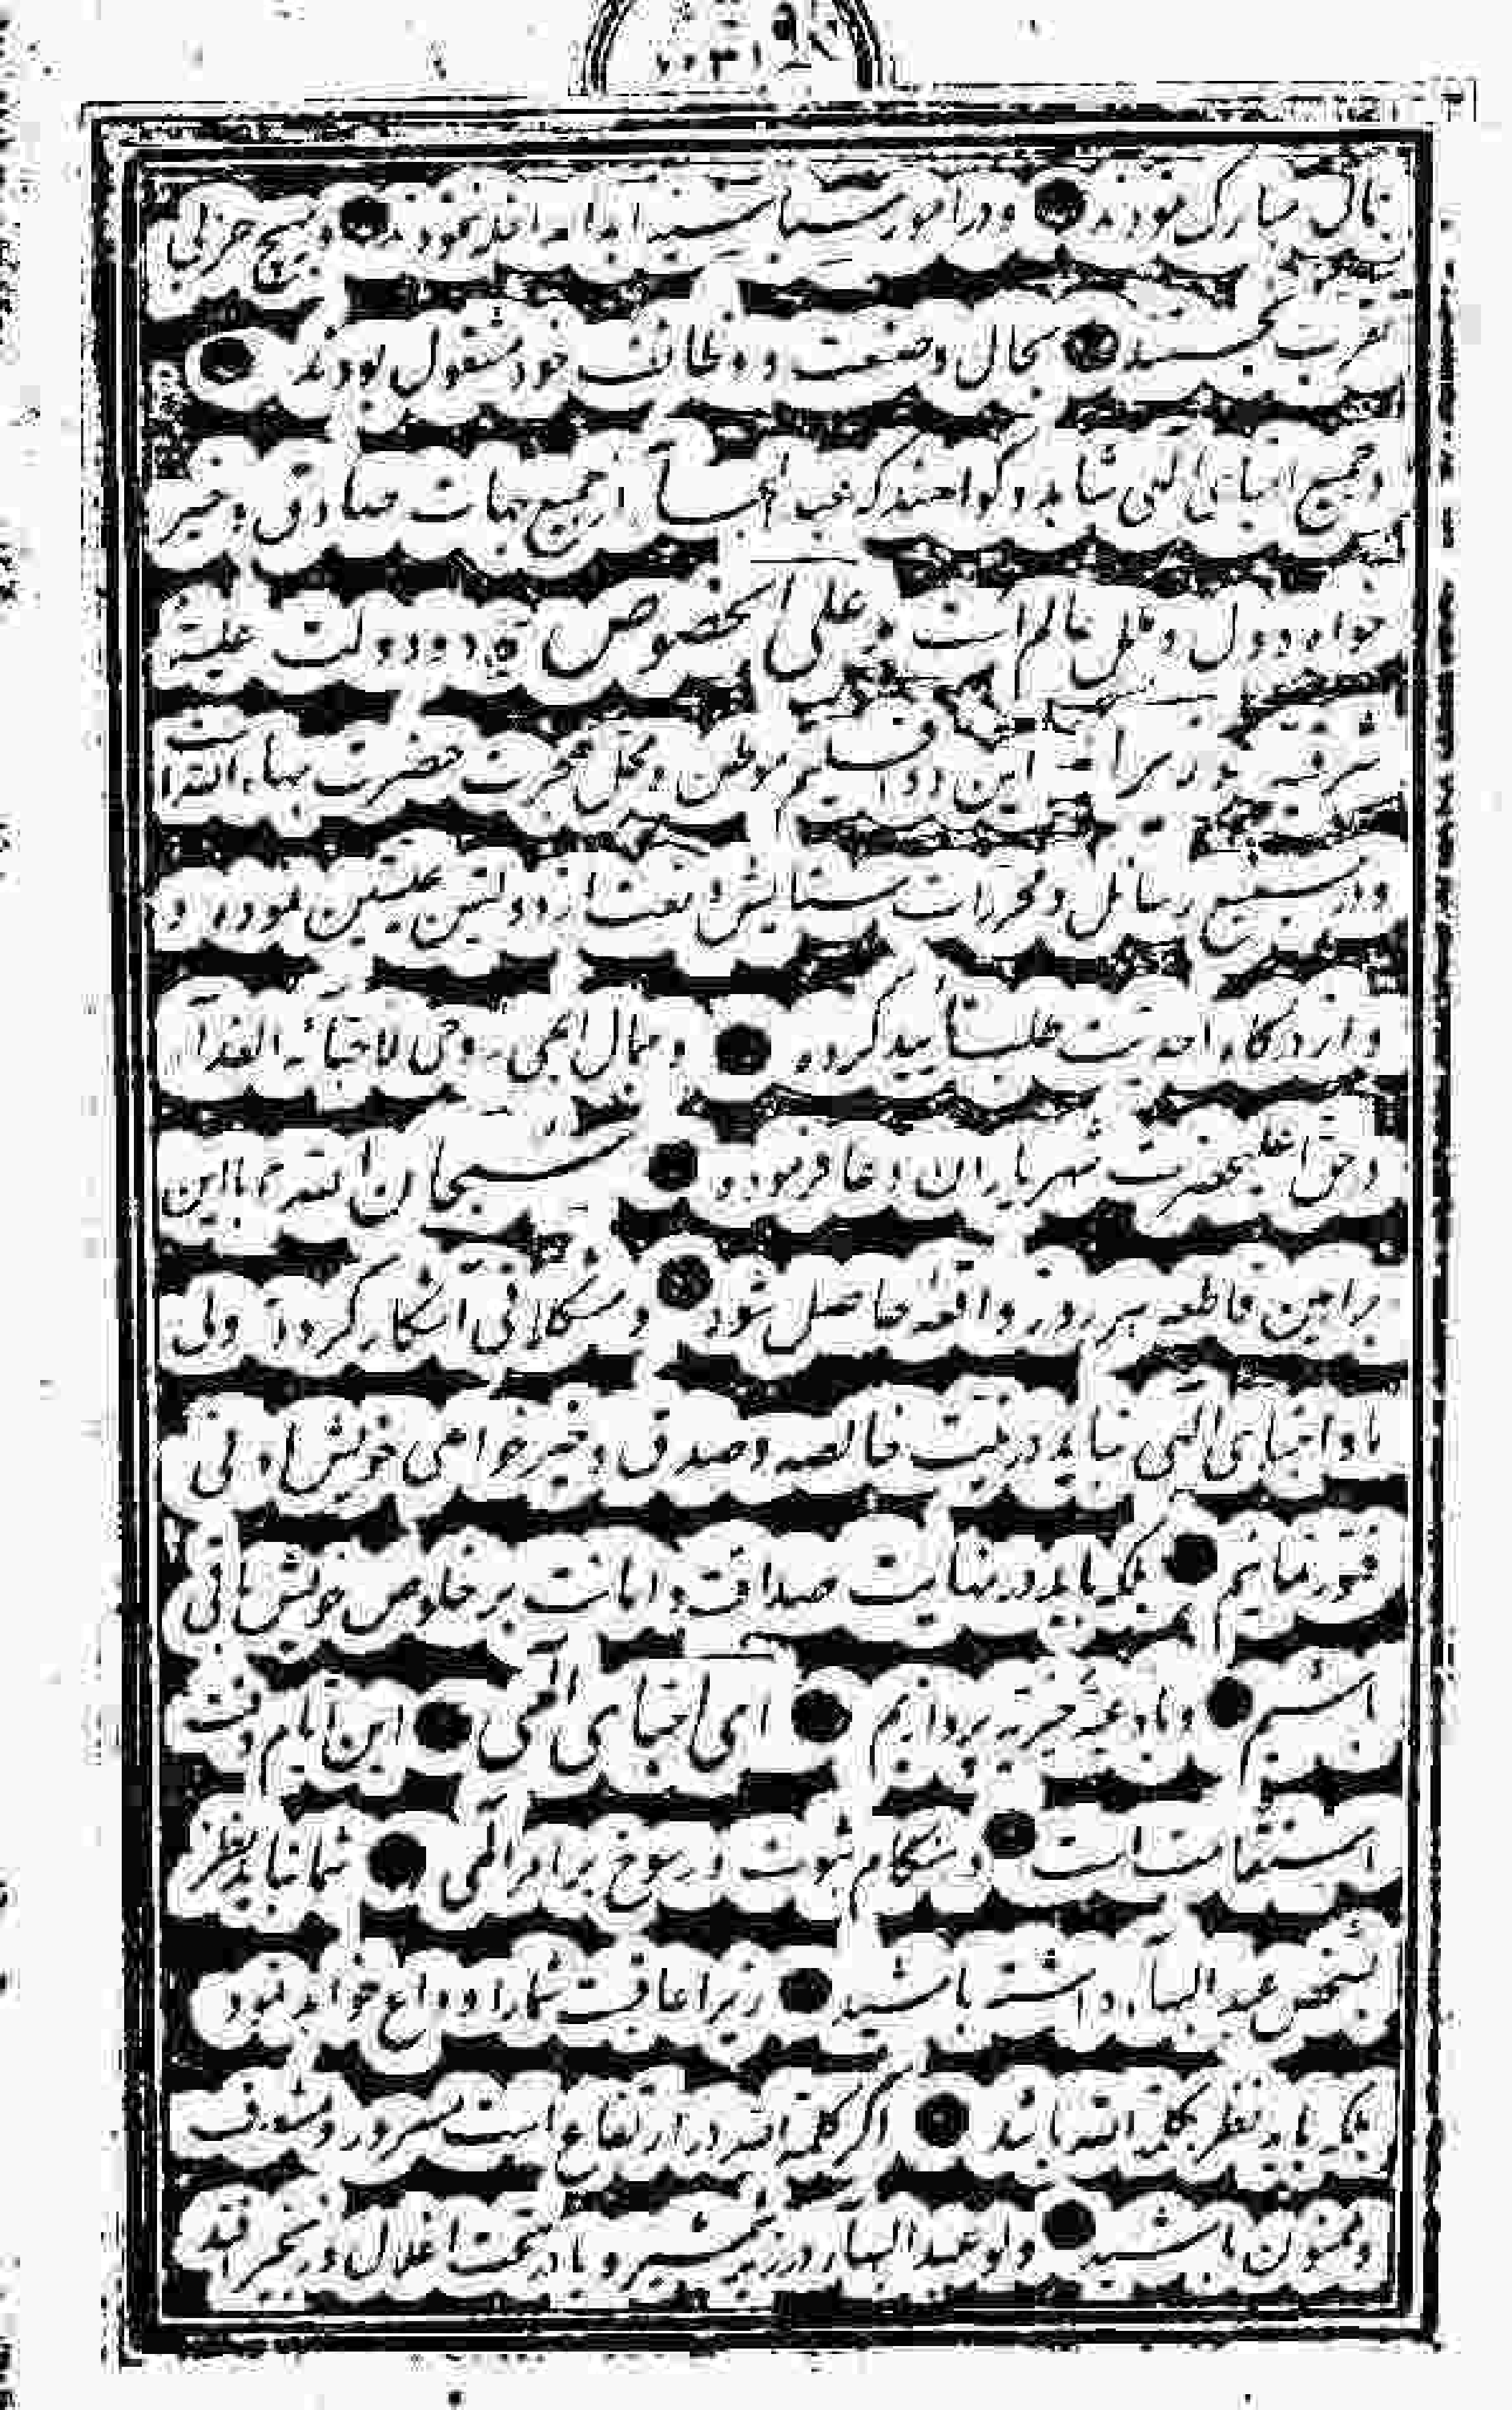 نمودند و در امور سیاسیه ابداً مداخله ننمودند و بهیچ حزبی
تقرب نجستند بحال و صنعت و وظائف خود مشغول بودند
و جمیع احبای الهی شاهد و گواهند که عبدالبهاء از جمیع جهات صادق و خیر
خواه دول و ملل عالم است و علی الخصوص دو دولت علیّه
شرقیه زیرا این دو اقلیم موطن و محل هجرت حضرت بهاءالله است
و در جمیع رسائل و محررات ستایش و نعت از دولتین علیّتین نموده و
و از درگاه احدیت طلب تأیید کرده و جمال ابهی روحی لاحبائه الفداء
در حق اعلیحضرت شهریاران دعا فرموده سبحان الله با این
براهین قاطعه هر روز واقعه حاصل شود و مشکلاتی آشکار گردد ولی
ما و احبای الهی نباید در نیت خالصه و صدق و خیرخواهی خویش ادنی
فتور نمائیم بلکه باید در نهایت صداقت و امانت بر خلوص خویش باقی
باشیم و بادعیه خیریه پردازیم ای احبای الهی این ایام وقت
استقامت است و هنگام ثبوت و رسوخ بر امر الهی شما نباید نظر
بشخص عبدالبهاء داشته باشید زیرا عاقبت شما را وداع خواهد نمود
بلکه باید نظر بکلمة الله باشد اگر کلمة الله در ارتفاع است مسرور و مشعوف
و ممنون باشید ولو عبدالبهاء در زیر شمشیر و یا در تحت اغلال و زنجیر افتد